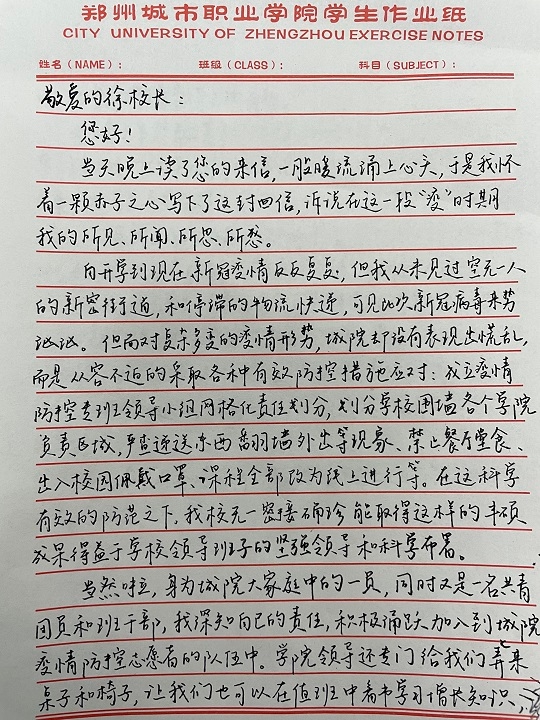 郑州城市职业学院学生作业纸
CITY UNIVERSITY OF ZHENGZHOU EXERCISE NOTES
姓名(NAME): 班级(CLASS): 科目(SUBJECT):
敬爱的徐校长:
您好!
当天晚上读了您的来信,一股暖流涌上心头,于是我怀
着一颗赤子之心写下了这封回信,诉说在这一段“疫”时期
我的所见、所闻、所思、所愁。
自开学到现在新冠疫情反反复复,但我从未见过空无一人
的新密街道,和停滞的物流快递,可见此次新冠病毒来势
汹汹。但面对复杂多变的疫情形势,城院却没有表现出慌乱,
而是从容不迫的采取各种有效防控措施应对:成立疫情
防控专班领导小组网格化责任划分,划分学校围墙各个学院
负责区域,严查递送东西翻墙外出等现象、禁止餐厅堂食、
出入校园佩戴口罩、课程全部改为线上进行等。在这科学
有效的防范之下,我校无一密接确诊能取得这样的丰硕
成果得益于学校领导班子的坚强领导和科学布署。
当然啦,身为城院大家庭中的一员,同时又是一名共青
团员和班干部,我深知自己的责任,积极踊跃加入到城院
疫情防控志愿者的队伍中。学院领导还专门给我们弄来
桌子和椅子,让我们也可以在值班中看书学习增长知识,